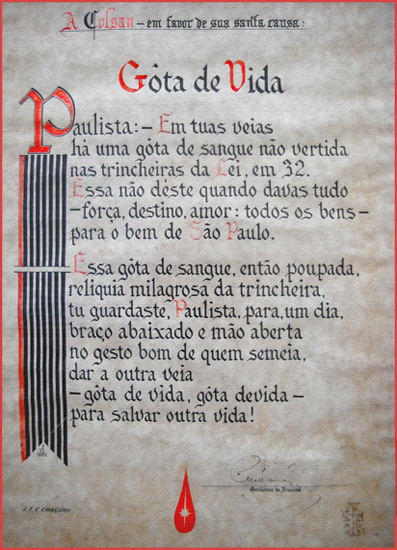 A Colsan – em favor de sua santa causa:
Gôta de Vida
Paulista: – Em tuas veias
há uma gôta de sangue não vertida
nas trincheiras da Lei, em 32.
Essa não déste quando davas tudo
– força, destino, amor: todos os bens –
para o bem de São Paulo.
Essa gôta de sangue, então poupada,
reliquia milagrosa da trincheira,
tu guardaste, Paulista, para, um dia,
braço abaixado e mão aberta
no gesto bom de quem semeia,
dar a outra veia
– gôta de vida, gôta devida –
para salvar outra vida!
Guilherme de Almeida